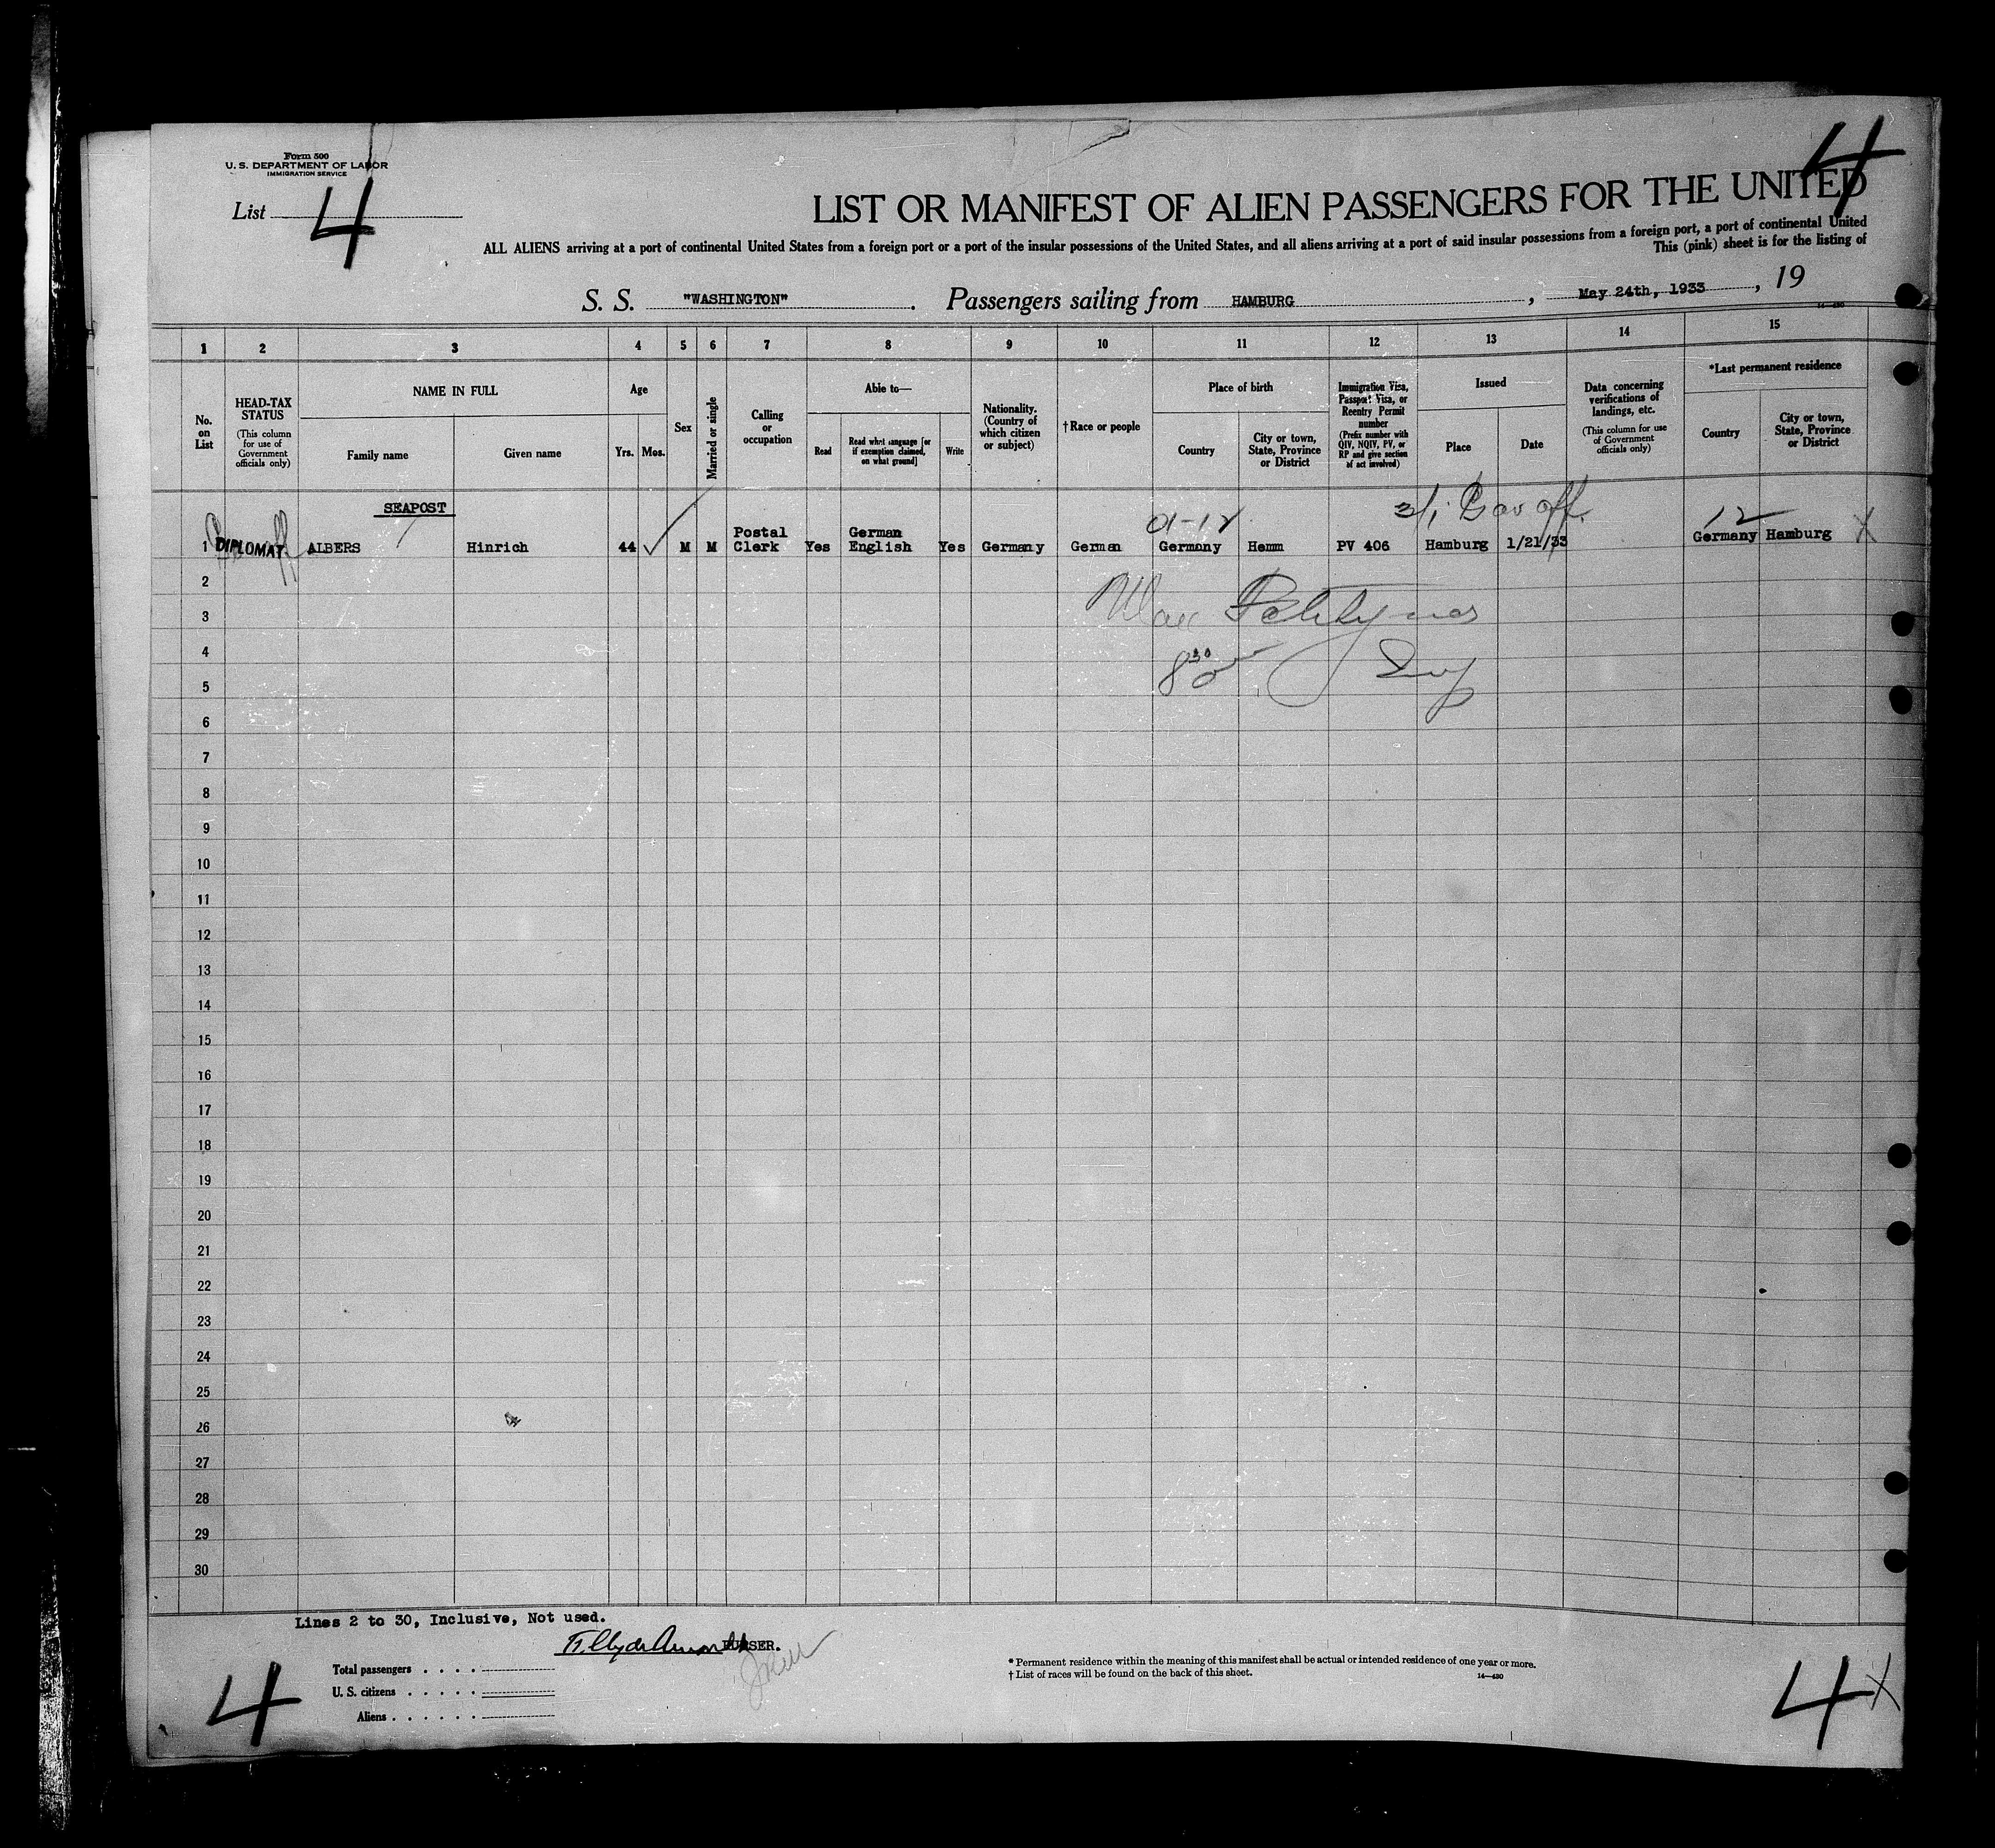 Form 500
U. S. DEPARTMENT OF LABOR
IMMIGRATION SERVICE
List 4
4
LIST OR MANIFEST OF ALIEN PASSENGERS FOR THE UNITED
ALL ALIENS arriving at a port of continental United States from a foreign port or a port of the insular possessions of the United States, and all aliens arriving at a port of said insular possessions from a foreign port, a port of continental United
This (pink) sheet is for the listing of
S. S. "WASHINGTON". Passengers sailing from HAMBURG, May 24th, 1933, 19
14—430
1 2 3 4 5 6 7 8 9 10 11 12 13 14 15
No. on List
HEAD-TAX STATUS
(This column for use of Government officials only)
NAME IN FULL
Family name
Given name
Age
Yrs. Mos.
Sex
Married or single
Calling or occupation
Able to—
Read
Read what language [or if exemption claimed, on what ground]
Write
Nationality. (Country of which citizen or subject)
†Race or people
Place of birth
Country
City or town, State, Province or District
Immigration Visa, Passport Visa, or Reentry Permit number
(Prefix number with QIV, NQIV, PV, or RP and give section of act involved)
Issued
Place
Date
Data concerning verifications of landings, etc.
(This column for use of Government officials only)
*Last permanent residence
Country
City or town, State, Province or District
SEAPOST
3/1 Gov off.
01-12
12
1 DIPLOMAT ALBERS Hinrich 44 M M Postal Clerk Yes German English Yes Germany German Germany Hemm PV 406 Hamburg 1/21/33 Germany Hamburg X
2
3
4
8 30
5
6
7
8
9
10
11
12
13
14
15
16
17
18
19
20
21
22
23
24
25
26
27
28
29
30
Lines 2 to 30, Inclusive, Not used.
PURSER.
Total passengers . . . .
U. S. citizens . . . . .
Aliens . . . . . .
* Permanent residence within the meaning of this manifest shall be actual or intended residence of one year or more.
† List of races will be found on the back of this sheet.
14—430
4
4 X